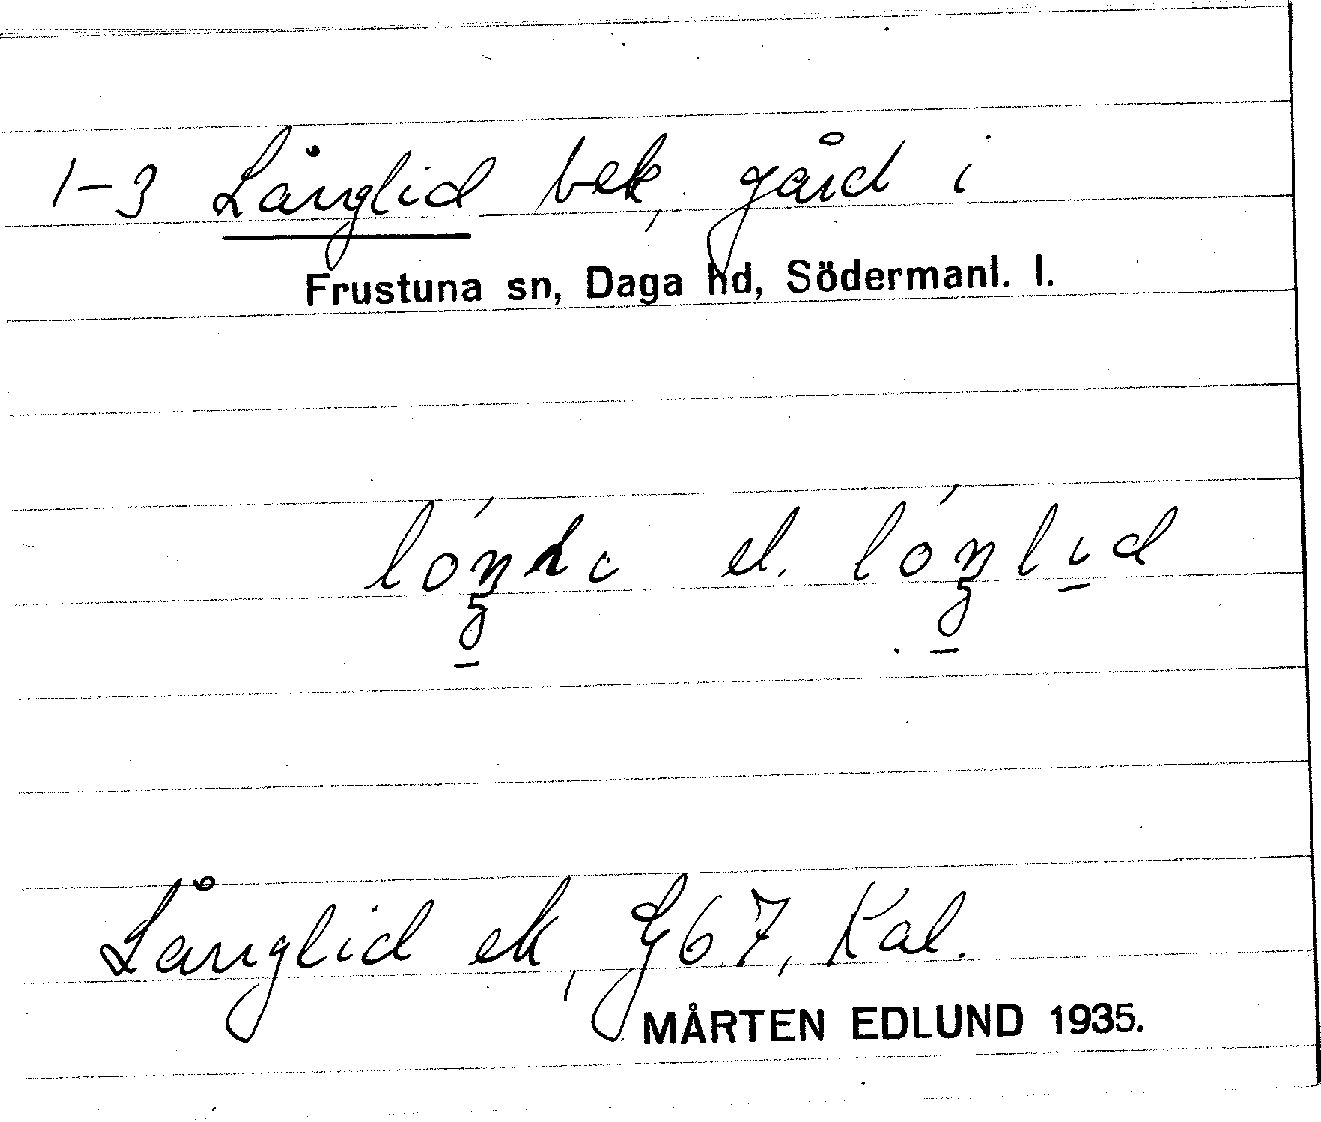 1-3 Långlid bek, gård i
Frustuna sn, Daga hd, Södermanl. l.
el.
Långlid ek, G67, Kal.
MÅRTEN EDLUND 1935.